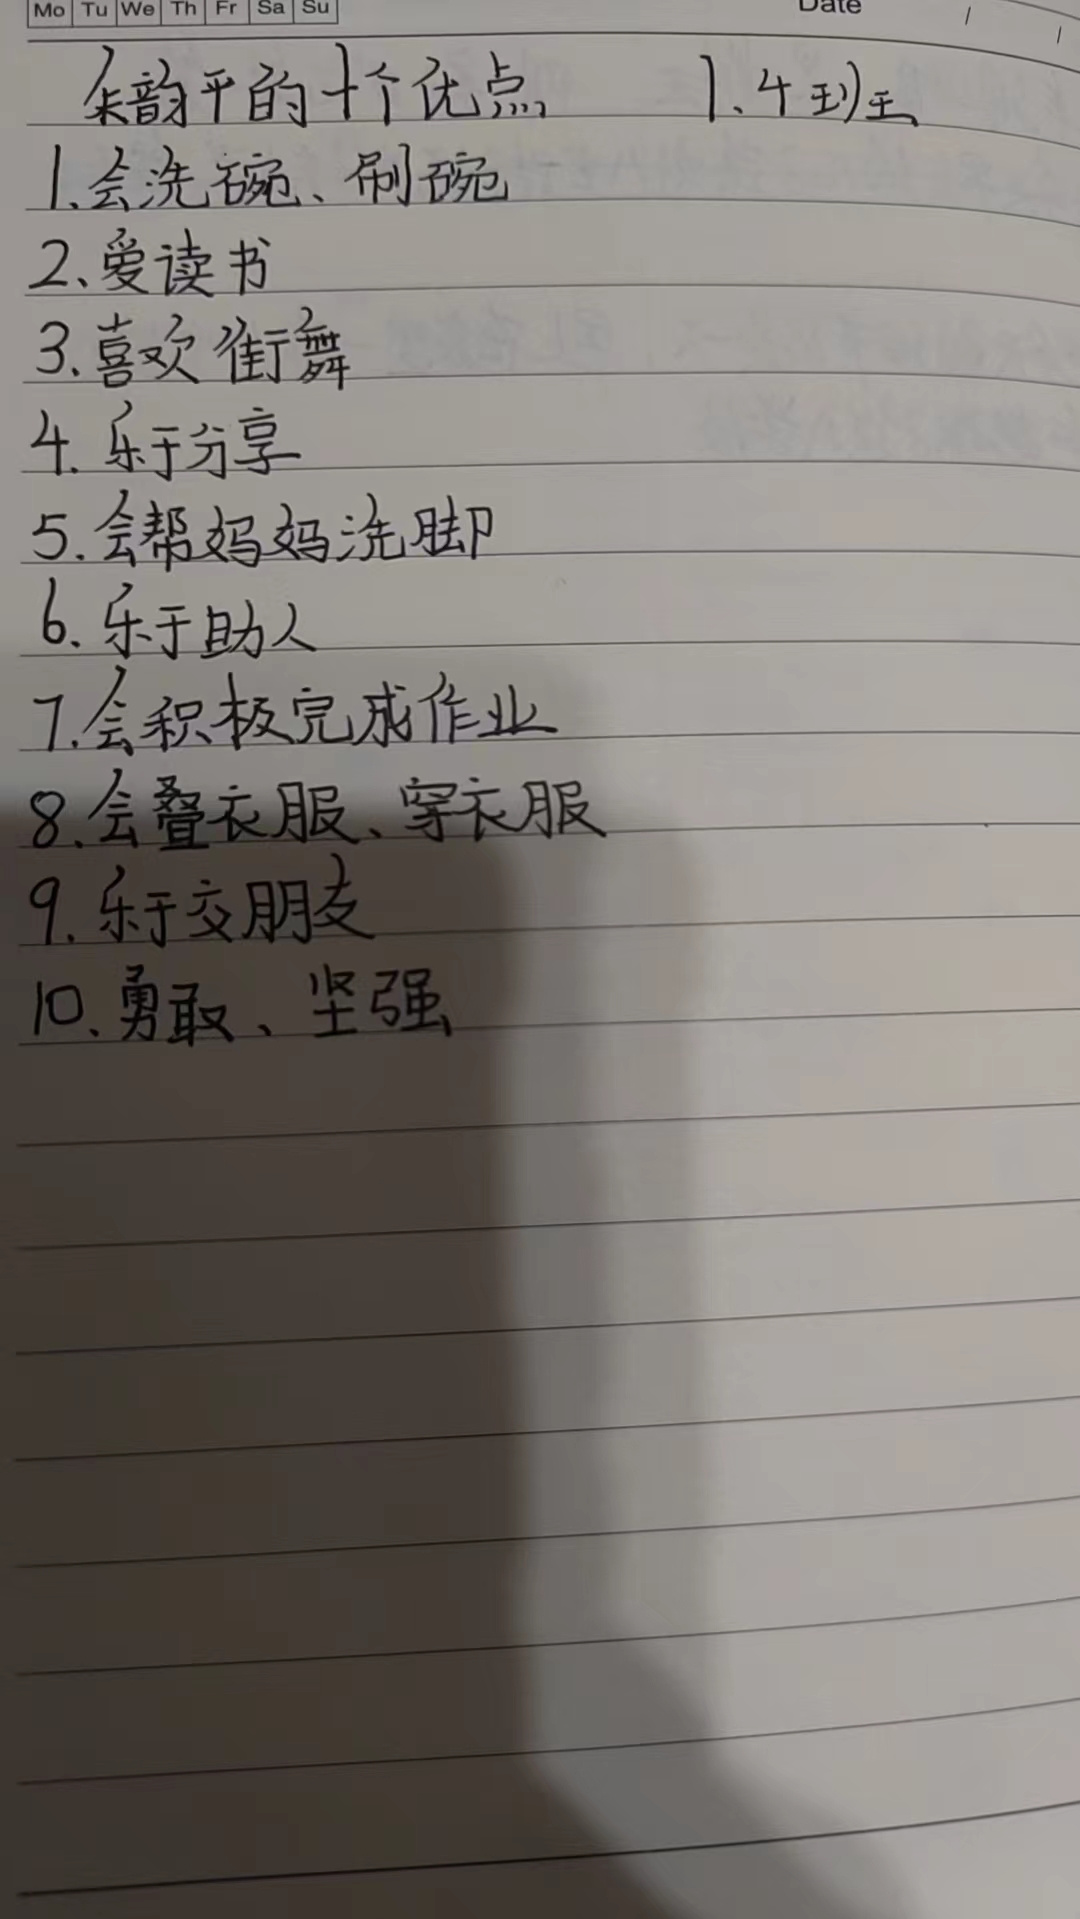 Mo Tu We Th Fr Sa Su Date / /
朱韵平的十个优点 1.4班
1.会洗碗、刷碗
2.爱读书
3.喜欢街舞
4.乐于分享
5.会帮妈妈洗脚
6.乐于助人
7.会积极完成作业
8.会叠衣服、穿衣服
9.乐于交朋友
10.勇敢、坚强